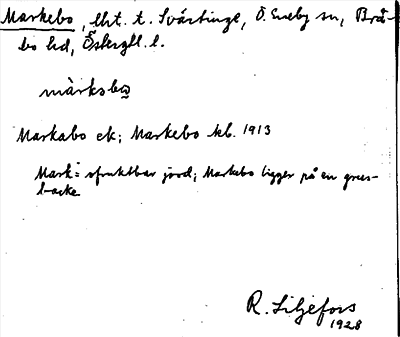 Markebo, lht. t. Svärtinge, Ö. Eneby sn, Brå-
bo hd, Östergtl. l.
màrksbω
Markabo ek; Markebo kb. 1913
Mark = ofruktbar jord; Markebo ligger på en grus-
backe
R. Liljefors
1928